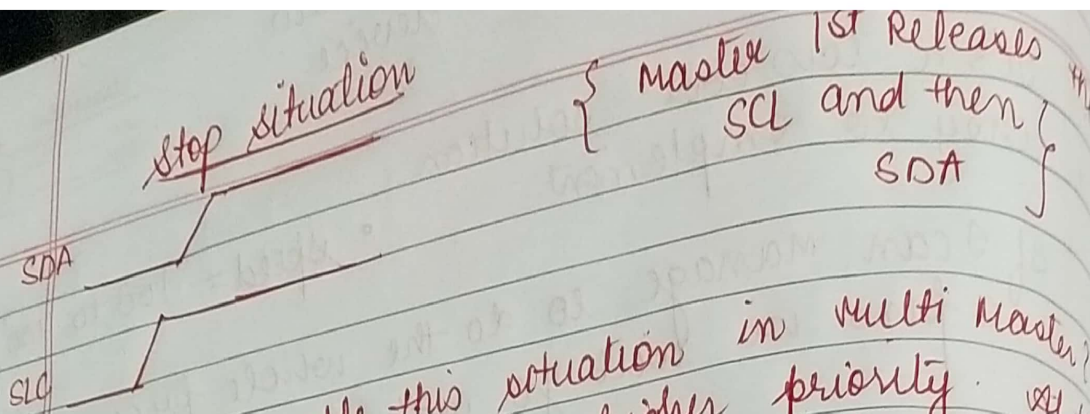 Stop situation
{ Master 1st Releases th
SCL and then
SDA }
SDA
SLC
this situation in Multi Master
priority.